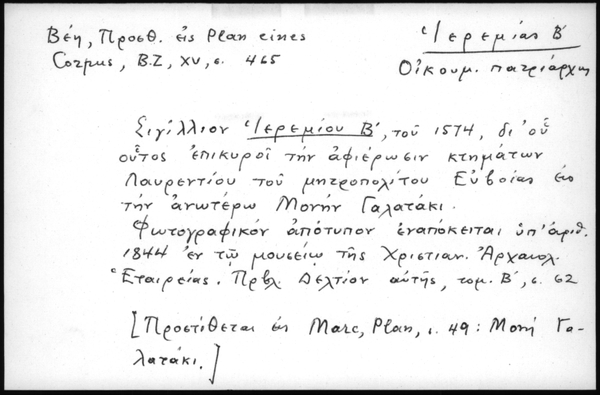 Βέη, Προσθ. εἰς Plan eines
Corpus, B.Z, XV, σ. 465
Ἱερεμίας Β΄
Οἰκουμ. πατριάρχης
Σιγίλλιον Ἱερεμίου Β΄, τοῦ 1574, δι' οὗ
οὗτος ἐπικυροῖ τὴν ἀφιέρωσιν κτημάτων
Λαυρεντίου τοῦ μητροπολίτου Εὐβοίας εἰς
τὴν ἀνωτέρω Μονὴν Γαλατάκι.
Φωτογραφικὸν ἀπότυπον ἐναπόκειται ὑπ' ἀριθ.
1844 ἐν τῷ μουσείῳ τῆς Χριστιαν. Ἀρχαιολ.
Ἑταιρείας. Πρβλ. Δελτίον αὐτῆς, τομ. Β΄, σ. 62
[Προστίθεται εἰς Marc, Plan, σ. 49: Μονὴ Γα-
λατάκι.]